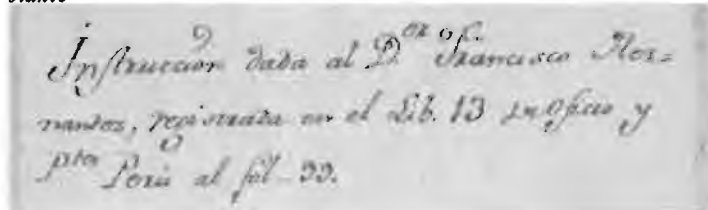 Instruccion dada al D.or Francisco Her=
nandez, registrada en el Lib. 13 de Oficio y
ptes Perú al fol- 33.